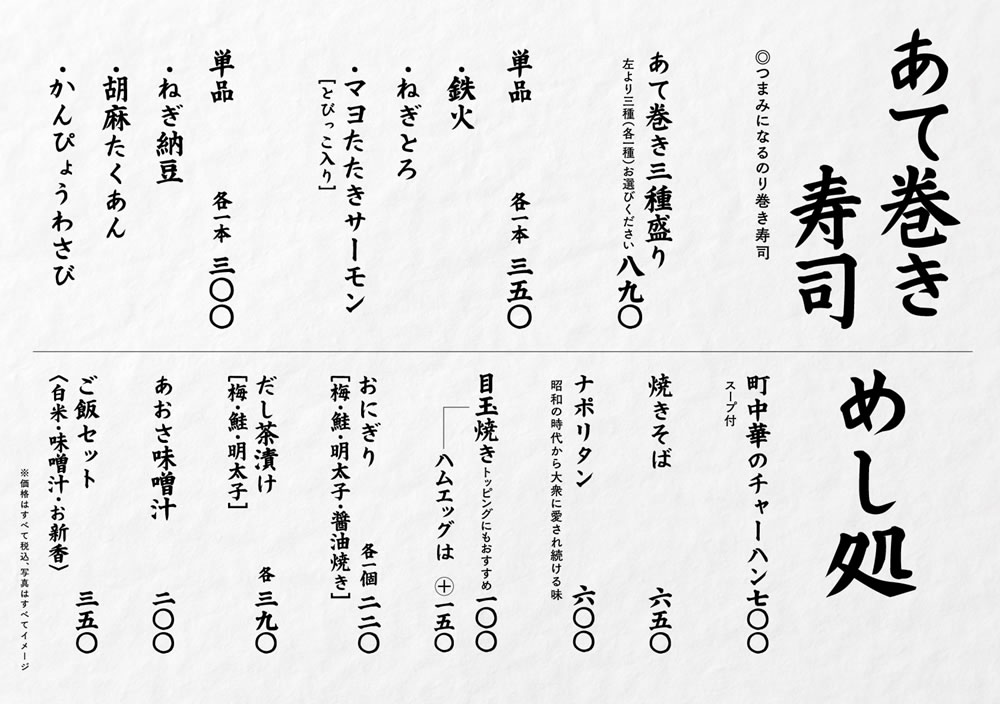 あて巻き
寿司
◎つまみになるのり巻き寿司
あて巻き三種盛り
左より三種(各一種)お選びください 八九〇
単品 各一本 三五〇
・鉄火
・ねぎとろ
・マヨたたきサーモン
[とびっこ入り]
単品 各一本 三〇〇
・ねぎ納豆
・胡麻たくあん
・かんぴょうわさび
めし処
町中華のチャーハン 七〇〇
スープ付
焼きそば 六五〇
ナポリタン 六〇〇
昭和の時代から大衆に愛され続ける味
目玉焼き トッピングにもおすすめ 一〇〇
ハムエッグは ⊕一五〇
おにぎり 各一個 二二〇
[梅・鮭・明太子・醤油焼き]
だし茶漬け 各 三九〇
[梅・鮭・明太子]
あおさ味噌汁 二〇〇
ご飯セット 三五〇
〈白米・味噌汁・お新香〉
※価格はすべて税込、写真はすべてイメージ